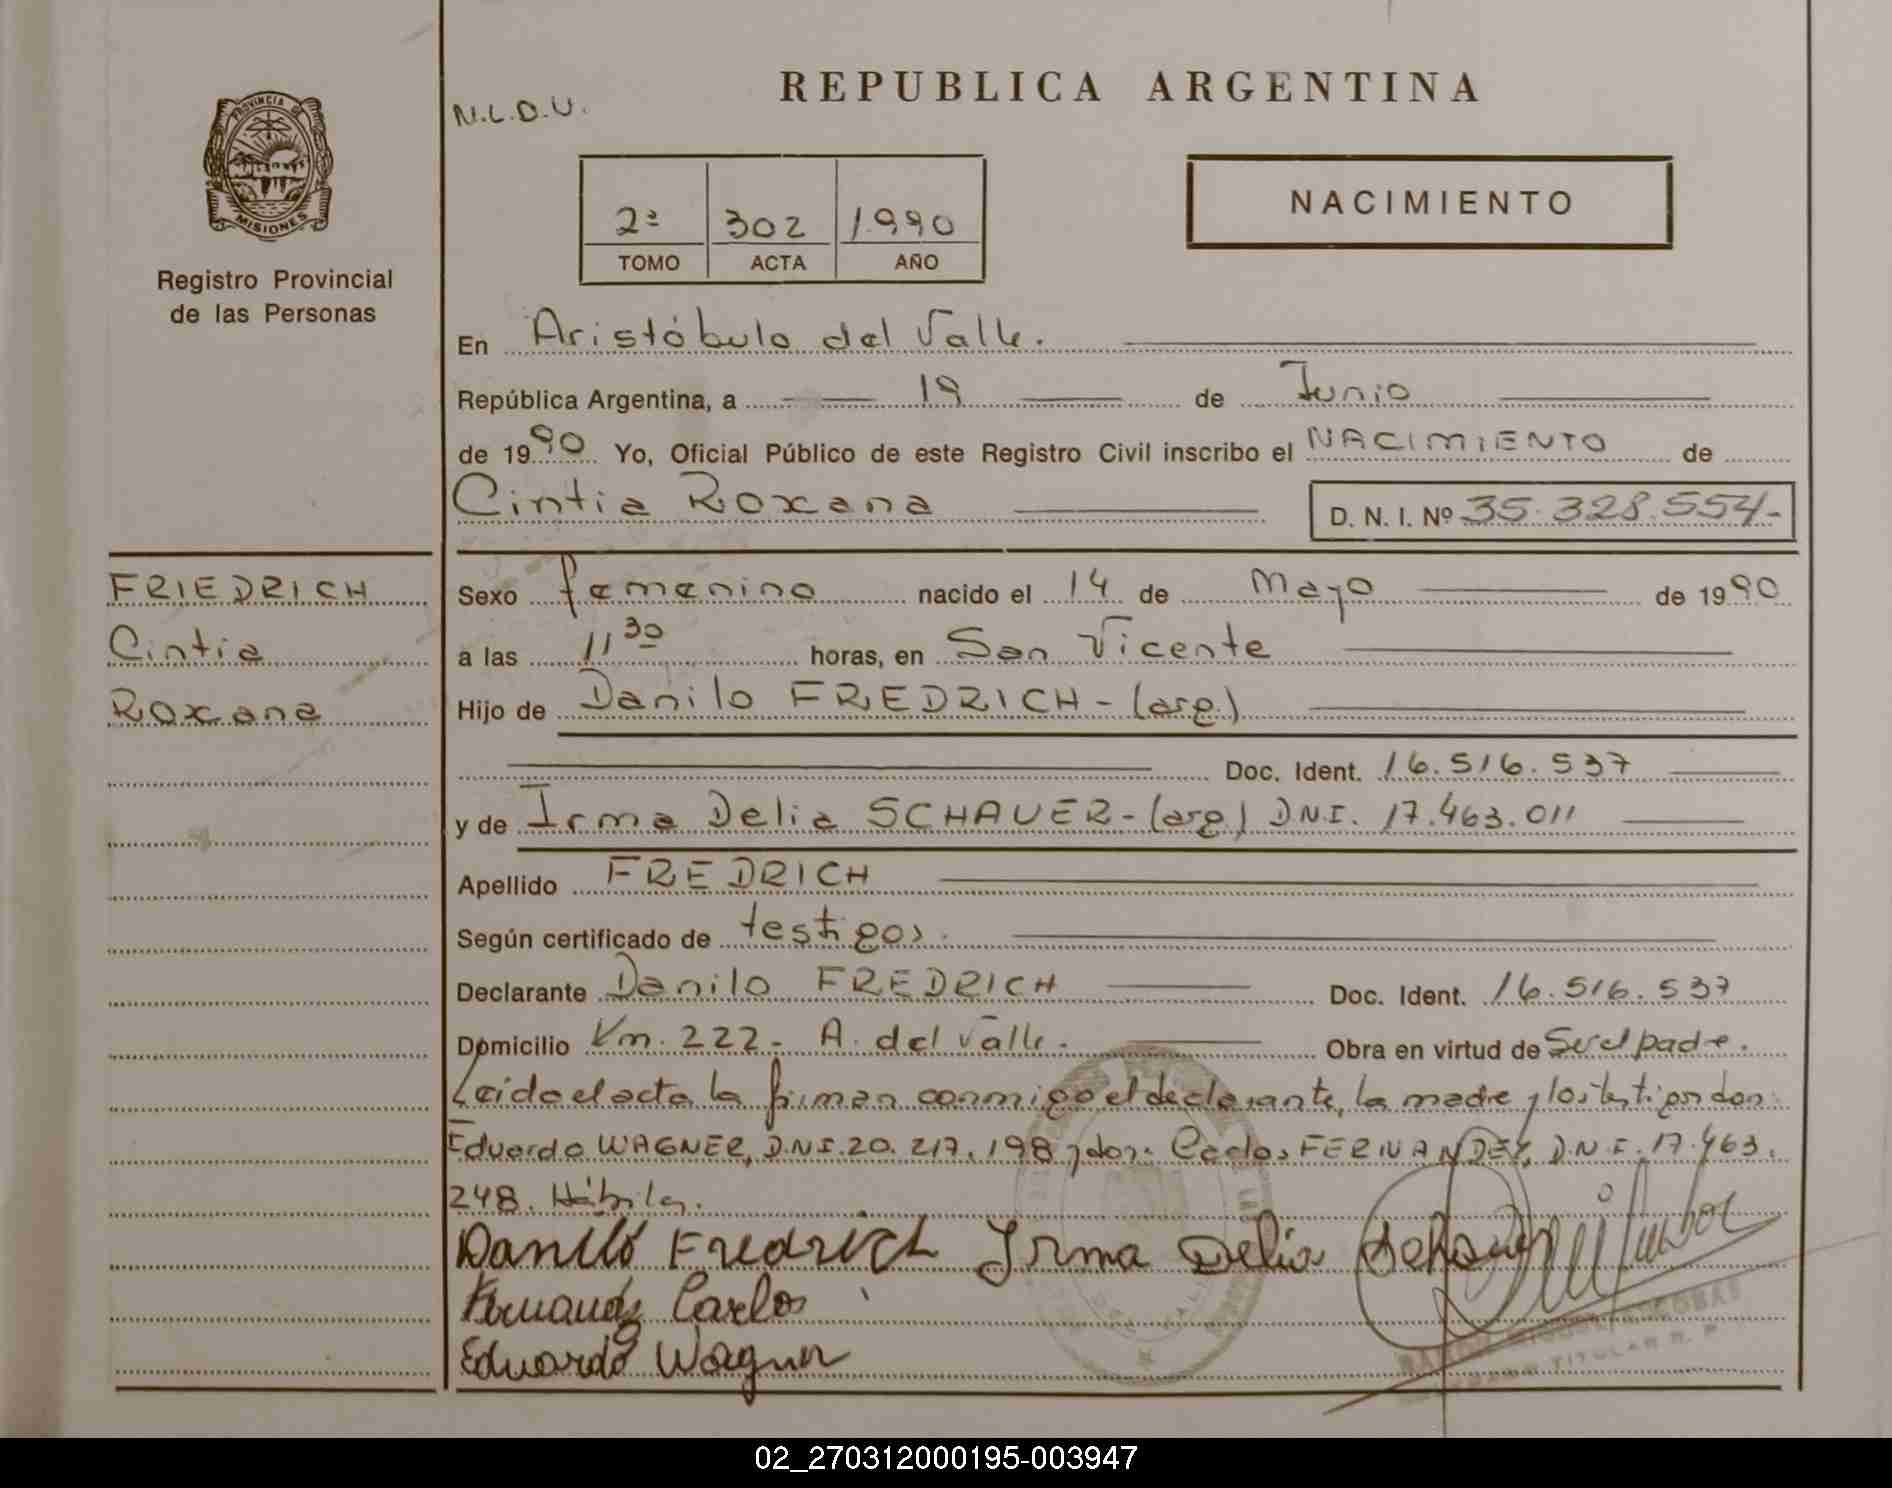 PROVINCIA DE
MISIONES
Registro Provincial
de las Personas
FRIEDRICH
Cintia
Roxana
N.L.D.U.
REPUBLICA ARGENTINA
2ª 302 1.990
TOMO ACTA AÑO
NACIMIENTO
En Aristóbulo del Valle.
República Argentina, a 19 de Junio
de 1990 Yo, Oficial Público de este Registro Civil inscribo el NACIMIENTO de
Cintia Roxana D. N. I. Nº 35.328.554-
Sexo femenino nacido el 14 de Mayo de 1990
a las 11 30 horas, en San Vicente
Hijo de Danilo FREDRICH - (arg.)
Doc. Ident. 16.516.537
y de Irma Delia SCHAUER - (arg) DNI. 17.463.011
Apellido FREDRICH
Según certificado de testigos.
Declarante Danilo FREDRICH Doc. Ident. 16.516.537
Domicilio Km. 222- A. del Valle. Obra en virtud de Ser el padre.
Leida el acta la firman conmigo el declarante, la madre y los testigos don
Eduardo WAGNER, D.N.I. 20.217.198 y don: Carlos FERNANDEZ, D.N.I. 17.463.
248. Hábiles.
Daniló Fredrich Irma Delia Schauer
Fernandez Carlos
Eduardo Wagner
TITULAR R. P.
02_270312000195-003947